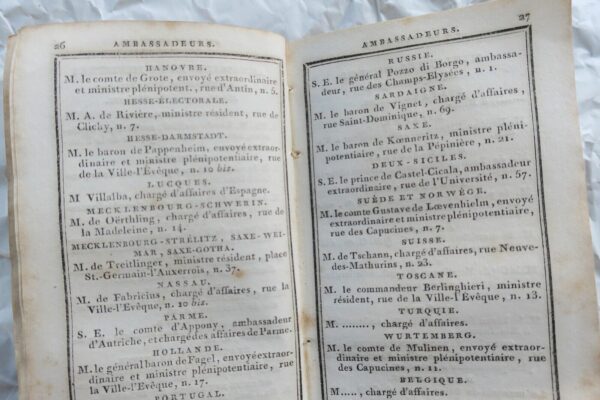 26
AMBASSADEURS.
HANOVRE.
M. le comte de Grote, envoyé extraordinaire
et ministre plénipotent., rue d'Antin, n. 5.
HESSE-ÉLECTORALE.
M. A. de Rivière, ministre résident, rue de
Clichy, n. 7.
HESSE-DARMSTADT.
M. le baron de Pappenheim, envoyé extraor-
dinaire et ministre plénipotentiaire, rue de
la Ville-l'Evêque, n. 10 bis.
LUCQUES.
M Villalba, chargé d'affaires d'Espagne.
MECKLENBOURG-SCHWERIN.
M. de Oërthling, chargé d'affaires, rue de
la Madeleine, n. 14.
MECKLENBOURG-STRÉLITZ, SAXE-WEI-
MAR, SAXE-GOTHA.
M. de Treitlinger, ministre résident, place
St.-Germain-l'Auxerrois, n. 37.
NASSAU.
M. de Fabricius, chargé d'affaires, rue de la
Ville-l'Evêque, n. 10 bis.
PARME.
S. E. le comte d'Appony, ambassadeur
d'Autriche, et chargé des affaires de Parme.
HOLLANDE.
M. le général baron de Fagel, envoyé extraor-
dinaire et ministre plénipotentiaire, rue
de la Ville-l'Evêque, n. 17.
PORTUGAL.
27
AMBASSADEURS.
RUSSIE.
S. E. le général Pozzo di Borgo, ambassa-
deur, rue des Champs-Elysées, n. 1.
SARDAIGNE.
M. le baron de Vignet, chargé d'affaires,
rue Saint-Dominique, n. 69.
SAXE.
M. le baron de Kœnneritz, ministre pléni-
potentiaire, rue de la Pépinière, n. 21.
DEUX-SICILES.
S. E. le prince de Castel-Cicala, ambassadeur
extraordinaire, rue de l'Université, n. 57.
SUÈDE ET NORWÈGE.
M. le comte Gustave de Lœvenhielm, envoyé
extraordinaire et ministre plénipotentiaire,
rue des Capucines, n. 7.
SUISSE.
M. de Tschann, chargé d'affaires, rue Neuve-
des-Mathurins, n. 23.
TOSCANE.
M. le commandeur Berlinghieri, ministre
résident, rue de la Ville-l'Evêque, n. 13.
TURQUIE.
M. ........, chargé d'affaires.
WURTEMBERG.
M. le comte de Mulinen, envoyé extraor-
dinaire et ministre plénipotentiaire, rue
des Capucines, n. 11.
BELGIQUE.
M....., chargé d'affaires.